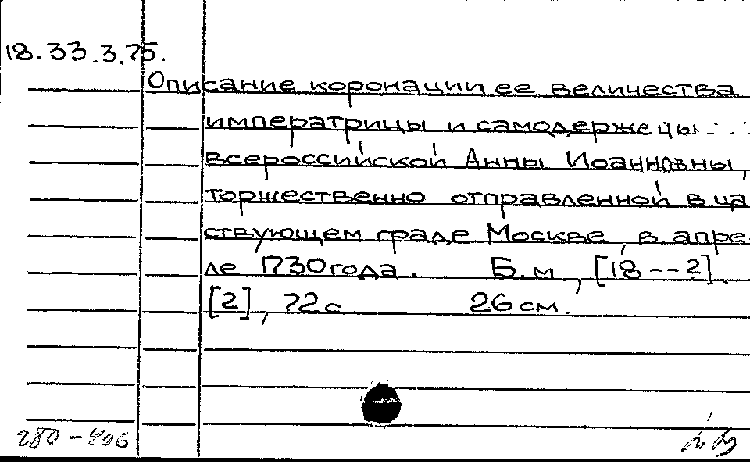 18.33.3.75.
Описание коронации ее величества
императрицы и самодержецы
всероссийской Анны Иоанновны,
торжественно отправленной в ца
ствующем граде Москве, в апре-
ле 1730 года. Б.м., [18--?].
[2], 72 с 26 см.